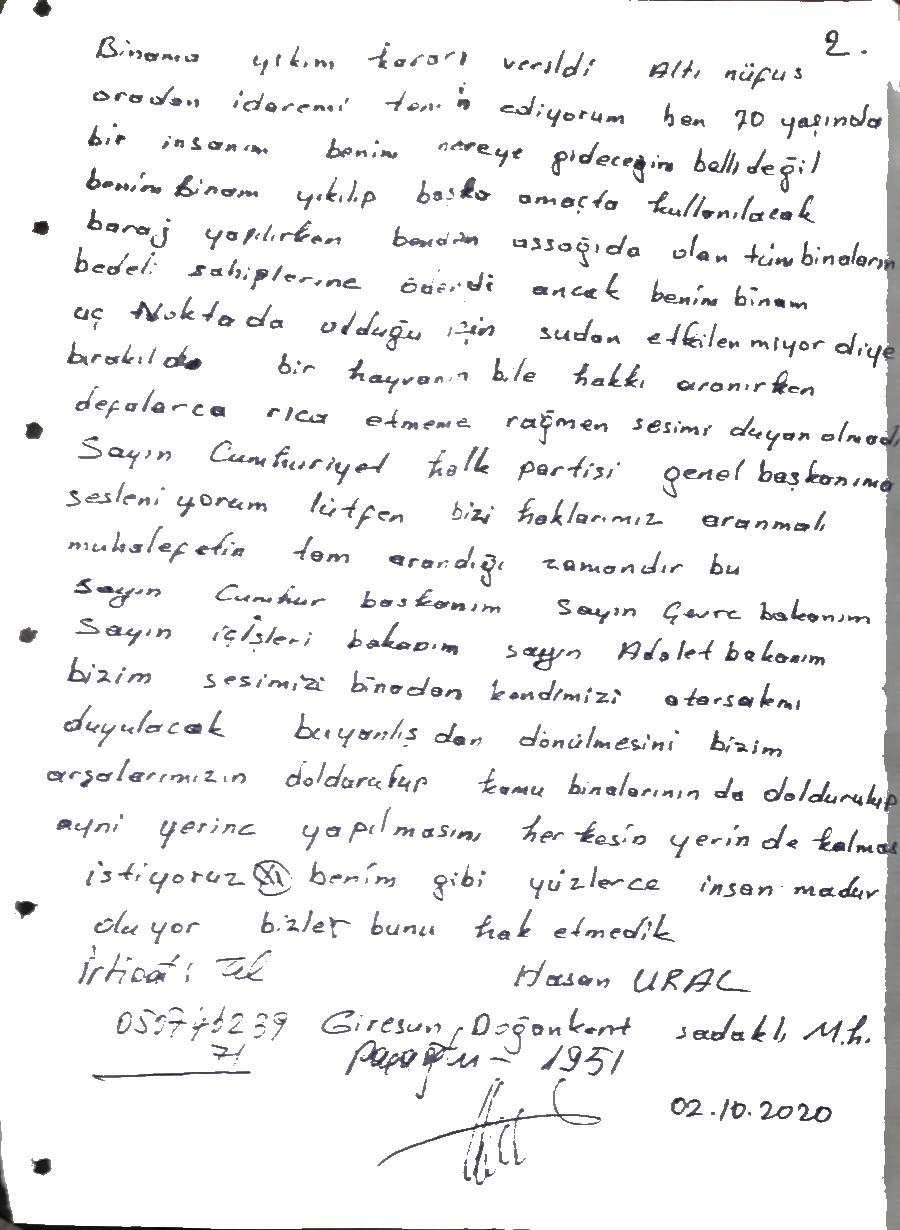 2.
Binama yıkım kararı verildi Altı nüfus
oradan idaremi temin ediyorum ben 70 yaşında
bir insanım benim nereye gideceğim belli değil
benim Binam yıkılıp başka amaçta kullanılacak
baraj yapılırken bendin assağıda olan tüm binaların
bedeli sahiplerine ödendi ancak benim binam
uç Noktada olduğu için sudan etkilenmiyor diye
bırakıldı bir hayvanın bile hakkı aranırken
defalarca rica etmeme rağmen sesimi duyan olmadı
Sayın Cumhuriyet halk partisi genel başkanıma
sesleniyorum lütfen bizi haklarımız aranmalı
muhalefetin tam arandığı zamandır bu
Sayın Cumhur baskanım Sayın Çevre bakanım
Sayın içişleri bakanım sayın Adalet bakanım
bizim sesimizi binadan kendimizi atarsakmı
duyulacak buyanlış dan dönülmesini bizim
arsalarımızın doldurulup kamu binalarının da doldurulup
ayni yerine yapılmasını herkesin yerinde kalması
istiyoruz benim gibi yüzlerce insan madur
oluyor bizler bunu hak etmedik
İrtibat: Tel Hasan URAL
Giresun, Doğankent sadaklı M.h.
71 1951
02.10.2020